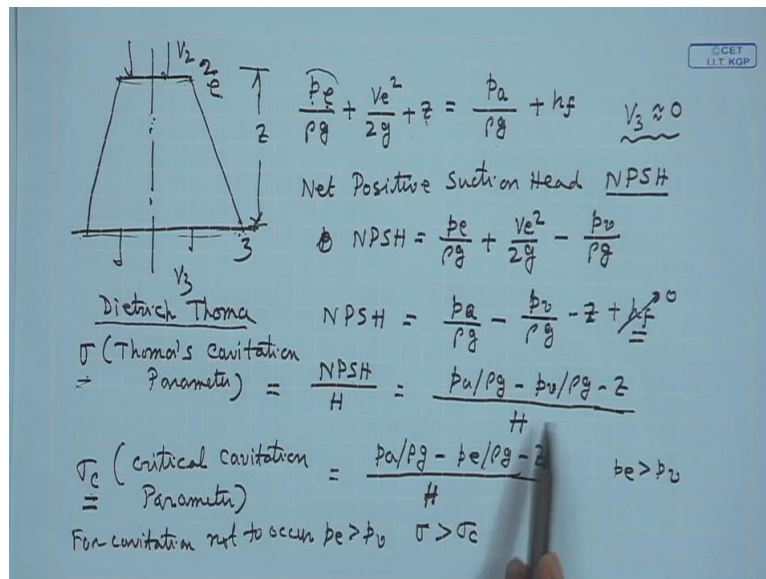 V₂ 2
e
z
3
V₃
© CET
I.I.T. KGP
pe/ρg + Ve²/2g + z = pa/ρg + hf V₃ ≈ 0
Net Positive Suction Head NPSH
NPSH = pe/ρg + Ve²/2g − pv/ρg
Dietrich Thoma
NPSH = pa/ρg − pv/ρg − z + hf 0
σ (Thoma's Cavitation Parameter) = NPSH/H = pa/ρg − pv/ρg − z / H
σc (critical cavitation Parameter) = pa/ρg − pe/ρg − z / H pe > pv
For cavitation not to occur pe > pv σ > σc